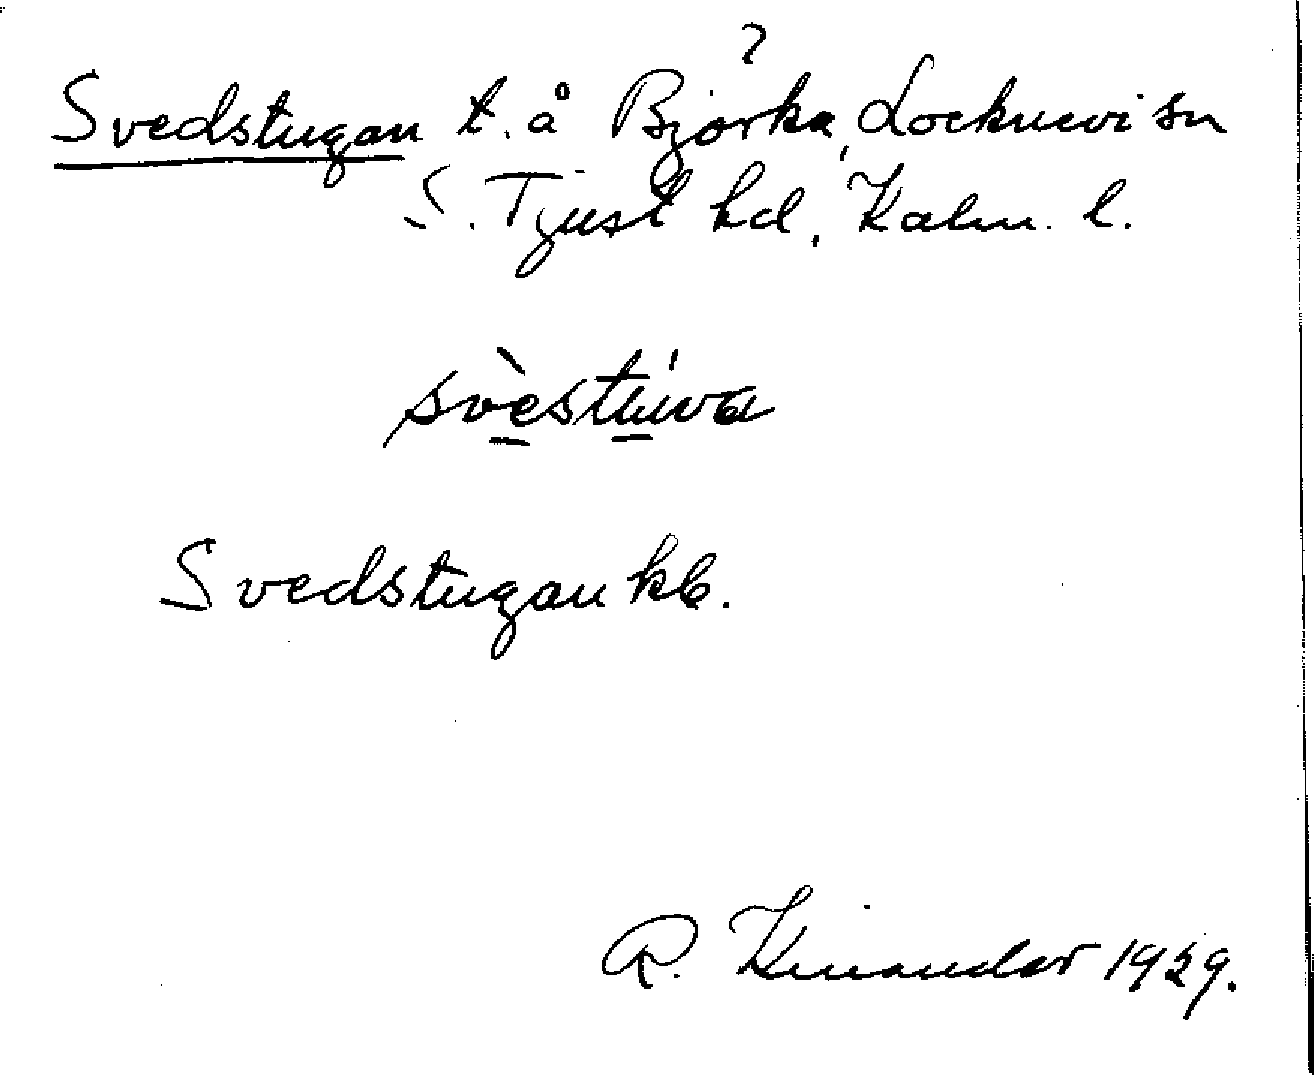 ?
Svedstugan t. å Björka, Locknevi sn
S. Tjust hd, Kalm. l.
Svedstugan kb.
R. Kinander 1929.